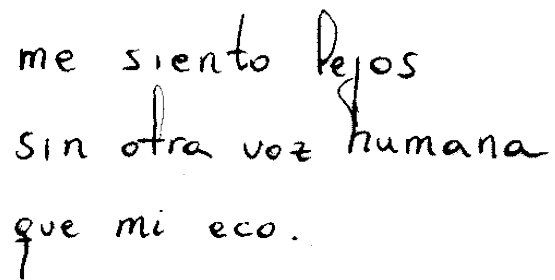 me siento lejos
sin otra voz humana
que mi eco.